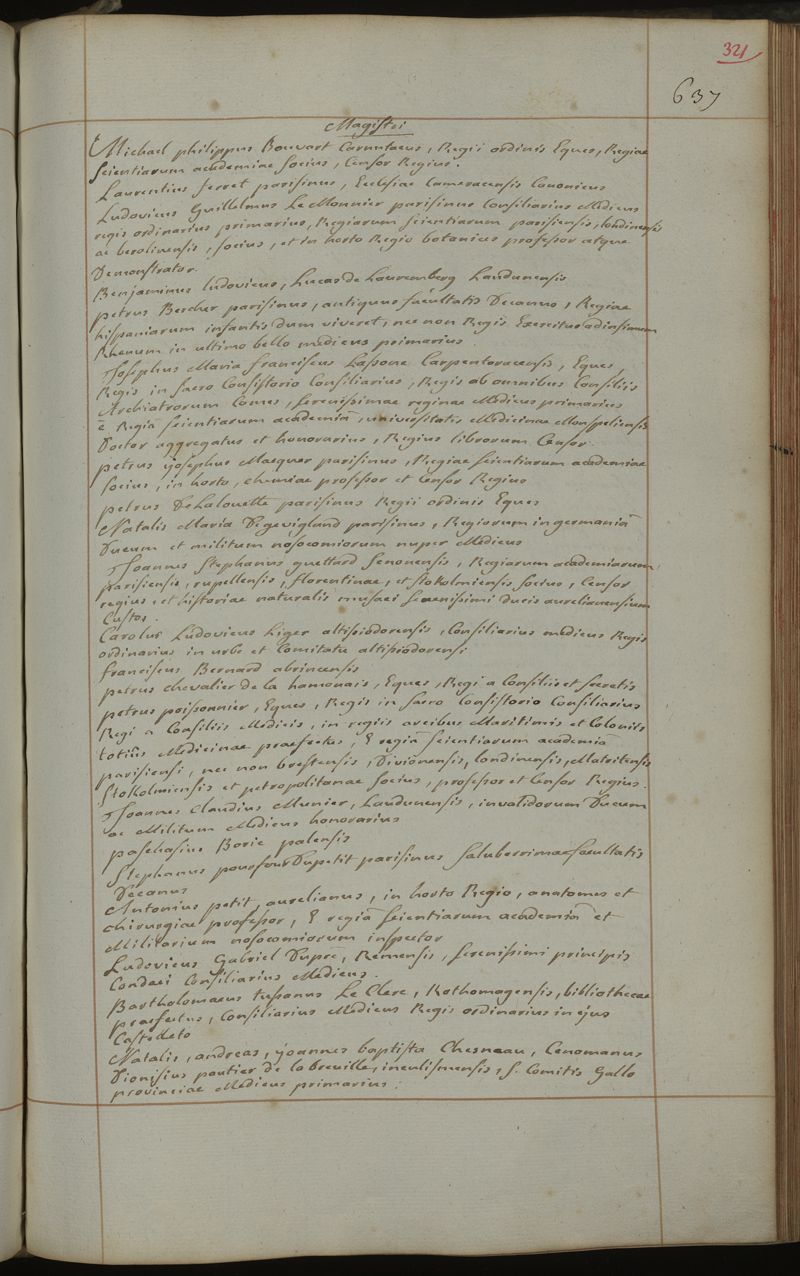 321
637
Magistri
Michael philippus Bouvart Carnutaeus, Regii ordinis Eques, Regiae
scientiarum academiae socius, Censor Regius.
Laurentius ferret parisinus, Ecclesiae Cameracensis Canonicus
Ludovicus Guillelmus Le Monnier parisinus Consiliarius Medicus
regis ordinarius primarius, Regiarum scientiarum parisiensis, londinensis
ac berolinensis, socius, et in horto Regio botanices professor atque
Demonstrator.
Benjaminus ludovicus, Lucas de Lauremberg Laudunensis
petrus Bercher parisinus, antiquus facultatis Decanus, Regiae
hispaniarum infantis dum viveret, nec non Regis Exercitus ad infimum
Rhenum in ultimo bello medicus primarius.
Josephus Maria franciscus Lassone Carpentoracensis, Eques,
Regis in sacro Consistorio Consiliarius, Regis ab omnibus Consiliis
Archiatrorum Comes, serenissimae reginae Medicus primarius
è Regiâ scientiarum academiâ, universitatis Medicinae Monspeliensis
Doctor aggregatus et honorarius, Regius librorum Censor.
petrus josephus Macquer parisinus, Regiae scientiarum academiae
socius, in horto, chymiae professor et Censor Regius
petrus DeLalouette parisinus Regii ordinis Eques
Natalis Maria Degevigland parisinus, Regiorum in germaniâ
Ducum et militum nosocomiorum nuper Medicus
Joannes Stephanus guettard senonensis, Regiarum academiarum
parisiensis, rupellensis, florentinae, et stokolmiensis socius, Censor
regius, et historiae naturalis musaei serenissimi ducis aurelianensium
Custos.
Carolus Ludovicus Liger altissiodorensis, Consiliarius medicus Regis
ordinarius in urbe et Comitatu altissiodorensi
franciscus Bernard abrincensis
petrus chevalier de la hamonais, Eques, Regi a Consiliis et secretis
petrus poissonnier, Eques, Regis in sacro Consistorio Consiliarius
Regi a Consiliis Medicis, in regiis arcibus Maritimis et Coloniis
totius Medicinae praefectus, È regiâ scientiarum academiâ
parisiensi, nec non brestensis, Divionensis, londinensis, Matritensis
Stokolmiensis et petropolitanae socius, professor et Censor Regius.
Joannes Claudius Munier, Laudunensis, invalidorum Ducum
ac Militum Medicus honorarius
paschasius Borie palensis
Stephanus pourfour Dupetit parisinus saluberrimae facultatis
Decanus
Antonius petit aurelianus, in horto Regio, anatomes et
chirurgiae professor, È regiâ scientiarum academiâ et
Militarium nosocomiorum inspector
Ludovicus Gabriel Dupré, Remensis, serenissimi principis
Condaei Consiliarius Medicus.
Bartholomaeus tussanus Le Clerc, Rothomagensis, bibliothecae
praefectus, Consiliarius Medicus Regis ordinarius in ejus
Castelleto
Natalis, andreas, joannes baptista Chesneau, Cenomanus
Dionisius pautier de la breuille, inculismensis, S. Comitis Gallo
provinciae Medicus primarius.